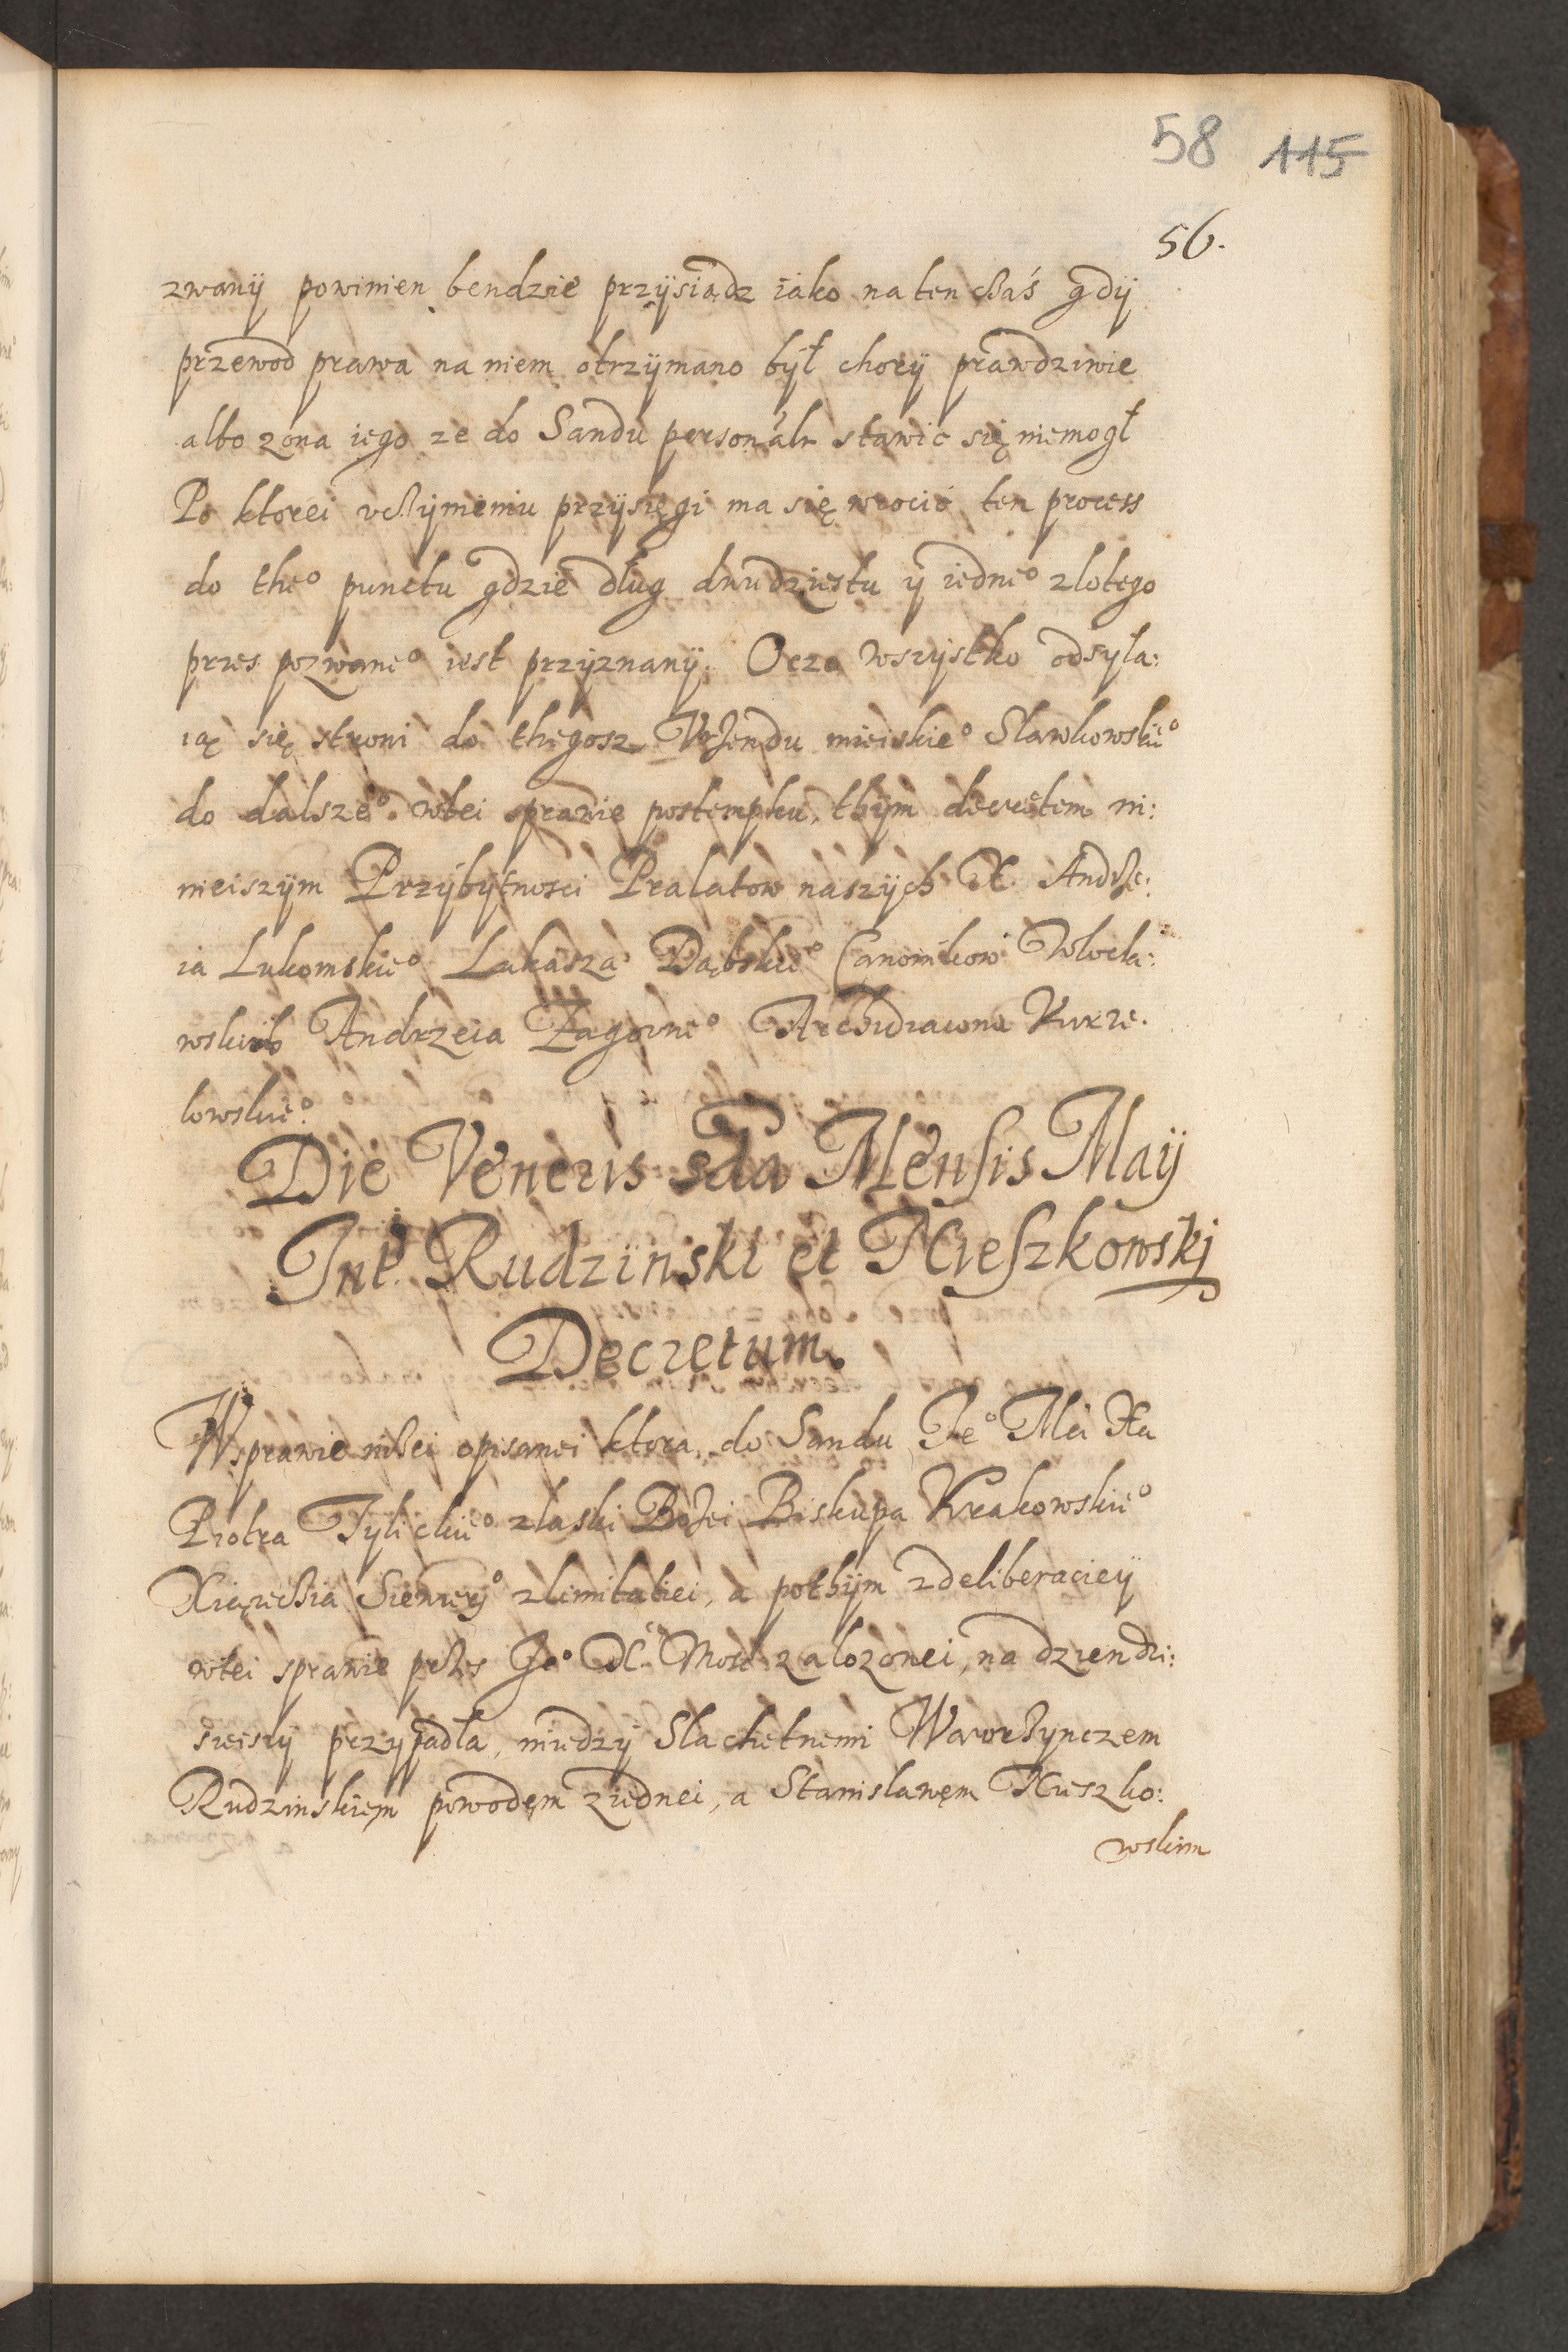 58 115
56.
zwanÿ powinien bendzie przÿsiądz iako na ten cżaś gdÿ
przewod prawa na niem otrzÿmano był chorÿ prawdziwie
albo zona iego ze do Sandu personalr stawic się niemogł
Po ktorei vcżÿnieniu przÿsięgi ma się wrocić ten process
do the° punctu gdzie dług dwudziestu ÿ iedne° zlotego
przes pozwane° iest przÿznanÿ. Oczo wszÿstko odsyła:
ią się stroni do thegosz Vrzendu mieiskie° Slawkowskie°
do dalsze° wtei sprawie postempku, thÿm decretem ni:
nieiszÿm Przÿbÿtnosci Pralatow naszÿch X. Andrze:
ia Lukomskie° Lukasza Dąbskie° Canonikow Wlocla:
wskich Andrzeia Zagorne° Archidiacona Kurze.
lowskie°.
Die Veneris 2da Mensis Maÿ
Int. Rudzinski et Kieszkowskj
Decretum.
Wsprawie nizei opisanei ktora do Sandu Je° Mci Xa
Piotra Tylickie° zlaski Bozei Biskupa Krakowskie°
Xiązecżia Siewierz° zlimitatiei, a pothÿm zdeliberacieÿ
wtei sprawie przes Je° M. Mosc zalozonei, na dzien dzi:
sieiszÿ przypadla, miedzÿ Slachetnemi Wawrzynczem
Rudzinskiem powodem ziednei, a Stanislawem Kieszko:
wskim